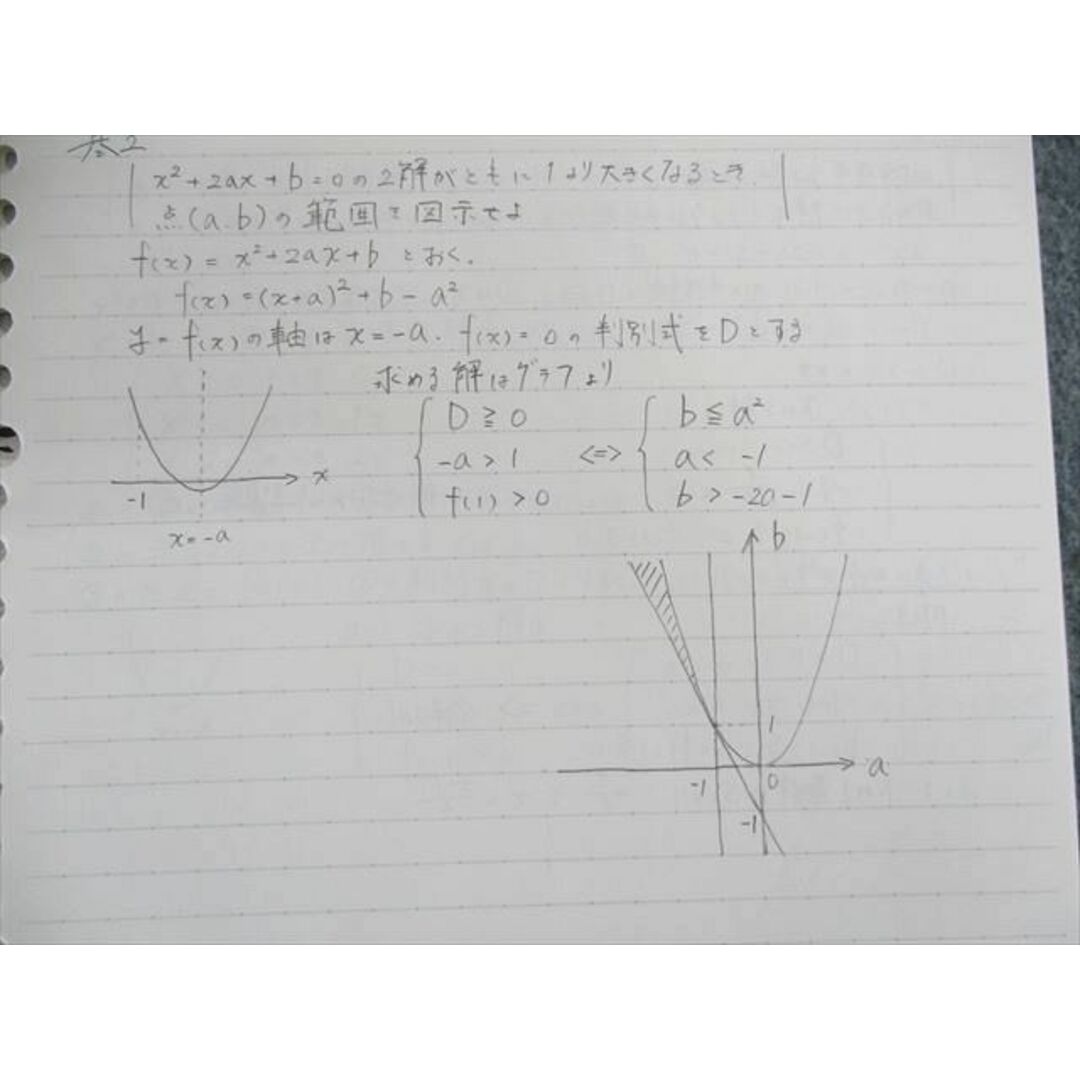 基2
x²+2ax+b=0の2解がともに1より大きくなるとき.
点(a.b)の範囲を図示せよ
f(x) = x²+2ax+b とおく.
f(x)=(x+a)²+b-a²
y=f(x)の軸はx=-a. f(x)=0の判別式をDとする
求める解はグラフより
D≧0
-a>1
f(1)>0
<=>
b≦a²
a< -1
b>-2a-1
-1
x
x=-a
b
1
-1
0
a
-1